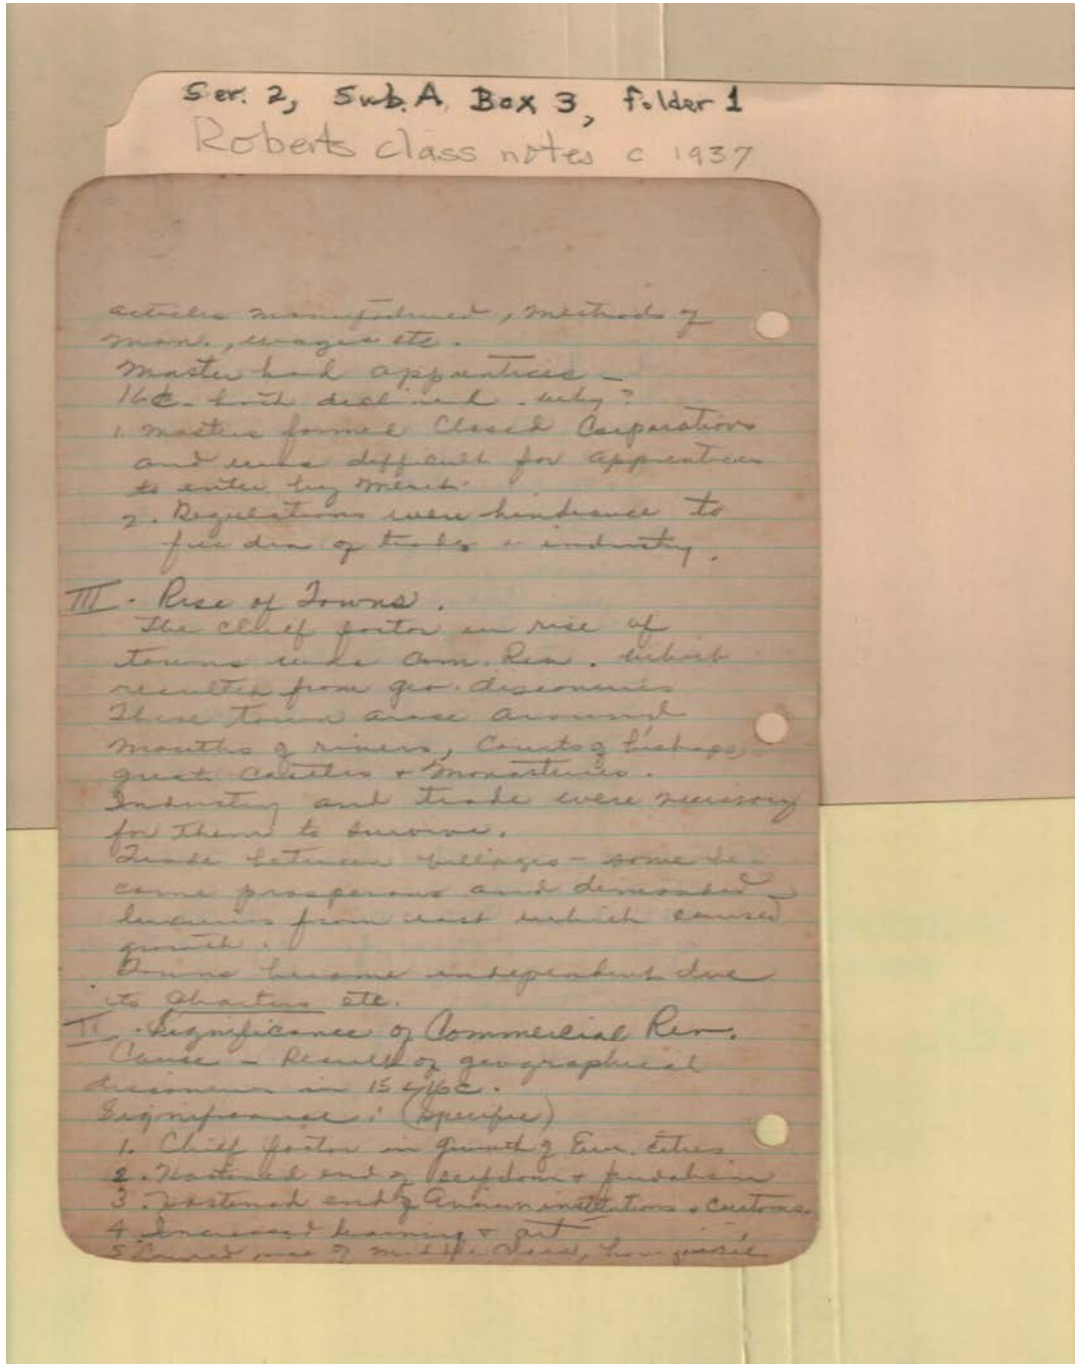 Ser. 2, Sub. A, Box 3, folder 1
Roberts class notes c 1937
articles manufactured, methods of
man., wages etc.
Master had apprentices -
16c. both declined. why?
1. Masters formed Closed Corporations
and was difficult for apprentices
to enter by merit.
2. Regulations were hindrance to
freedom of trades + industry.
III. Rise of Towns.
The chief factor in rise of
towns was Com. Rev. which
resulted from geo. discoveries
These town arose around
mouths of rivers, Courts of bishops,
great castles + monasteries.
Industry and trade were necessary
for them to survive.
Trade between villages - some be-
came prosperous and demanded
luxuries from east which caused
growth.
Towns became independent due
to Charters etc.
Significance of Commercial Rev.
Cause - Result of geographical
discoveries in 15 & 16c.
Significance: (Specific)
1. Chief factor in growth of Eur. Cities
2. Hastened end of serfdom + feudalism
3. Hastened end of institutions + customs.
4. Increased learning + art
5. Caused rise of middle class,